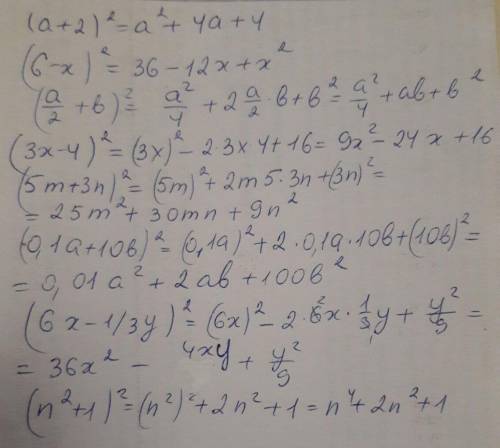 (a+2)² = a² + 4a + 4
(6-x)² = 36 - 12x + x²
(a/2 + b)² = a²/4 + 2 a/2 · b + b² = a²/4 + ab + b²
(3x-4)² = (3x)² - 2·3x 4 + 16 = 9x² - 24x + 16
(5m+3n)² = (5m)² + 2m5·3n + (3n)² =
= 25m² + 30mn + 9n²
(0,1a+10b)² = (0,1a)² + 2·0,1a·10b + (10b)² =
= 0,01a² + 2ab + 100b²
(6x - 1/3y)² = (6x)² - 2·6²x · 1/3 y + y²/9 =
= 36x² - 4xy + y²/9
(n²+1)² = (n²)² + 2n² + 1 = n⁴ + 2n² + 1